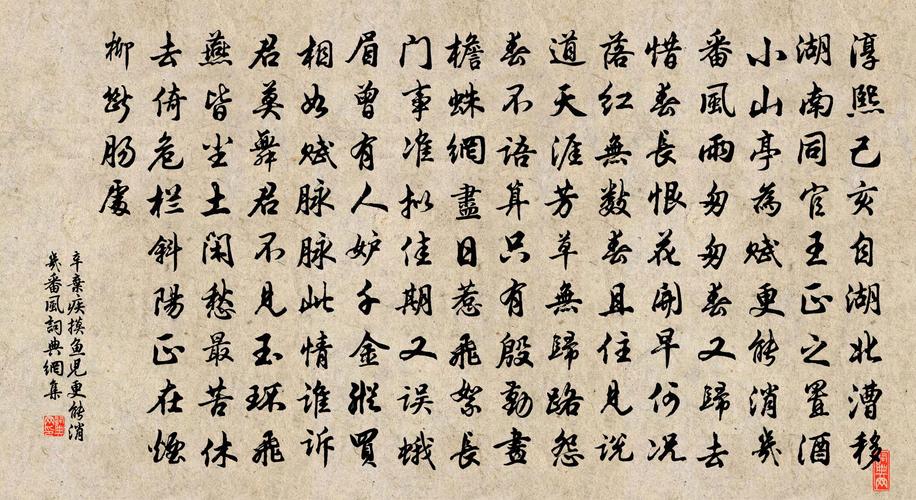 淳熙己亥自湖北漕移
湖南同官王正之置酒
小山亭為赋更能消幾
番風雨匆匆春又歸去
惜春長恨花開早何况
落红無數春且住見説
道天涯芳草無歸路怨
春不語算只有殷勤畫
檐蛛網盡日惹飛絮長
门事准拟佳期又误蛾
眉曾有人妒千金縱買
相如赋脉脉此情谁诉
君莫舞君不見玉环飛
燕皆尘土闲愁最苦休
去倚危栏斜陽正在煙
柳斷肠處
辛棄疾摸鱼兒更能消
幾番風詞典網集